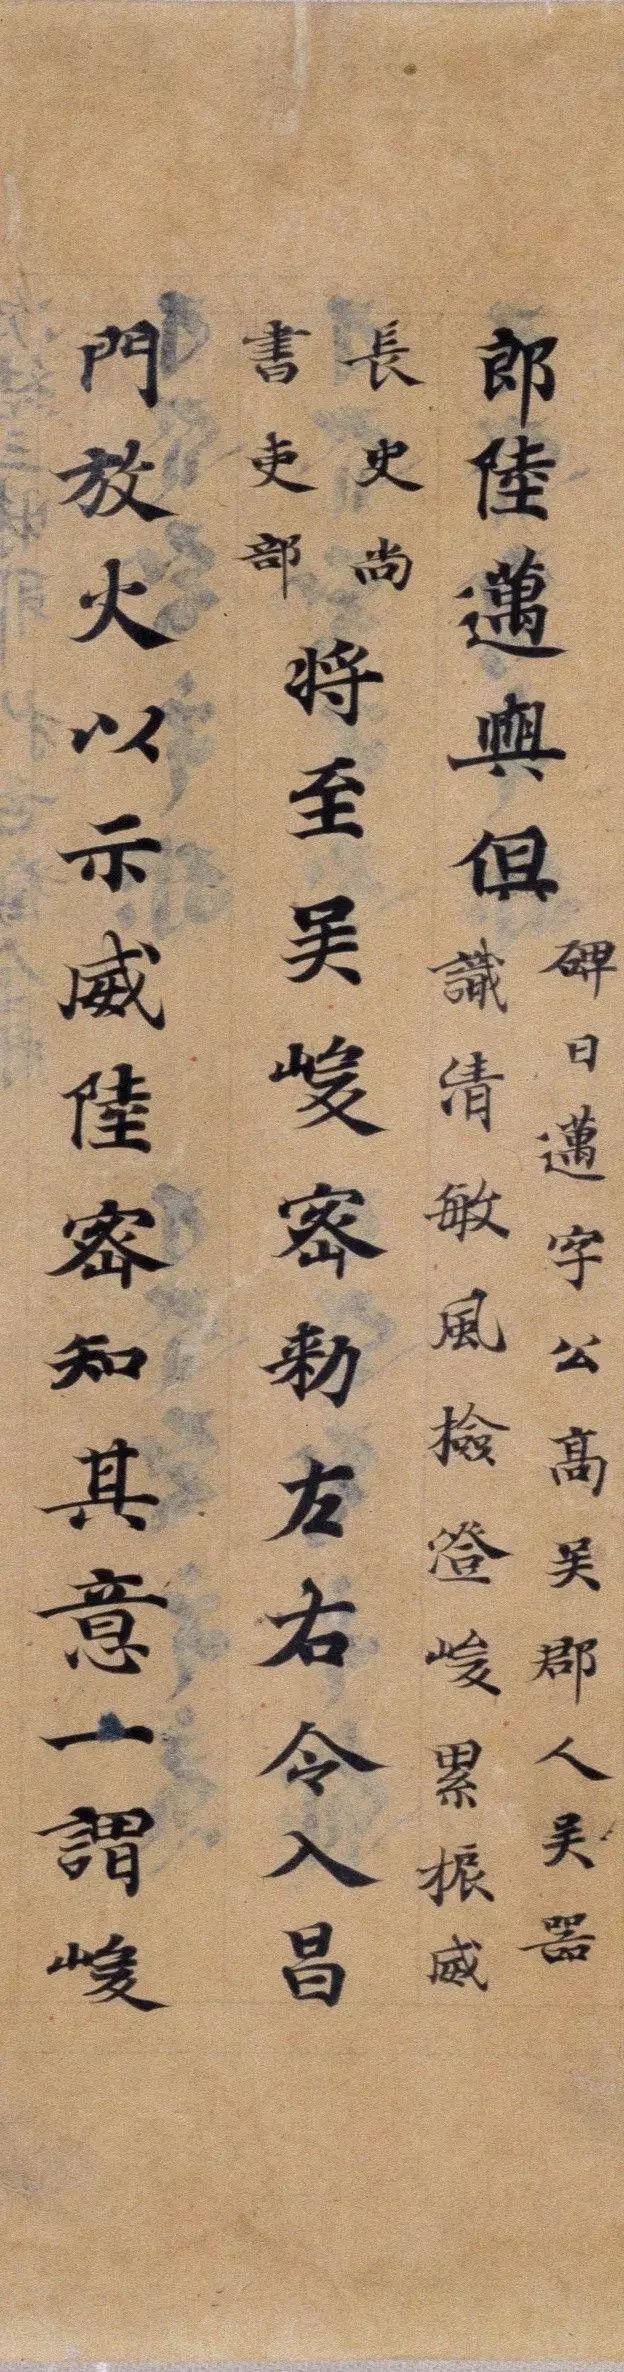 郎陸邁與俱
碑曰邁字公高吴郡人吴器
識清敏風撿澄峻累振威
長史尚
書吏部
将至吴峻密勑左右令入昌
門放火以示威陸密知其意一謂峻